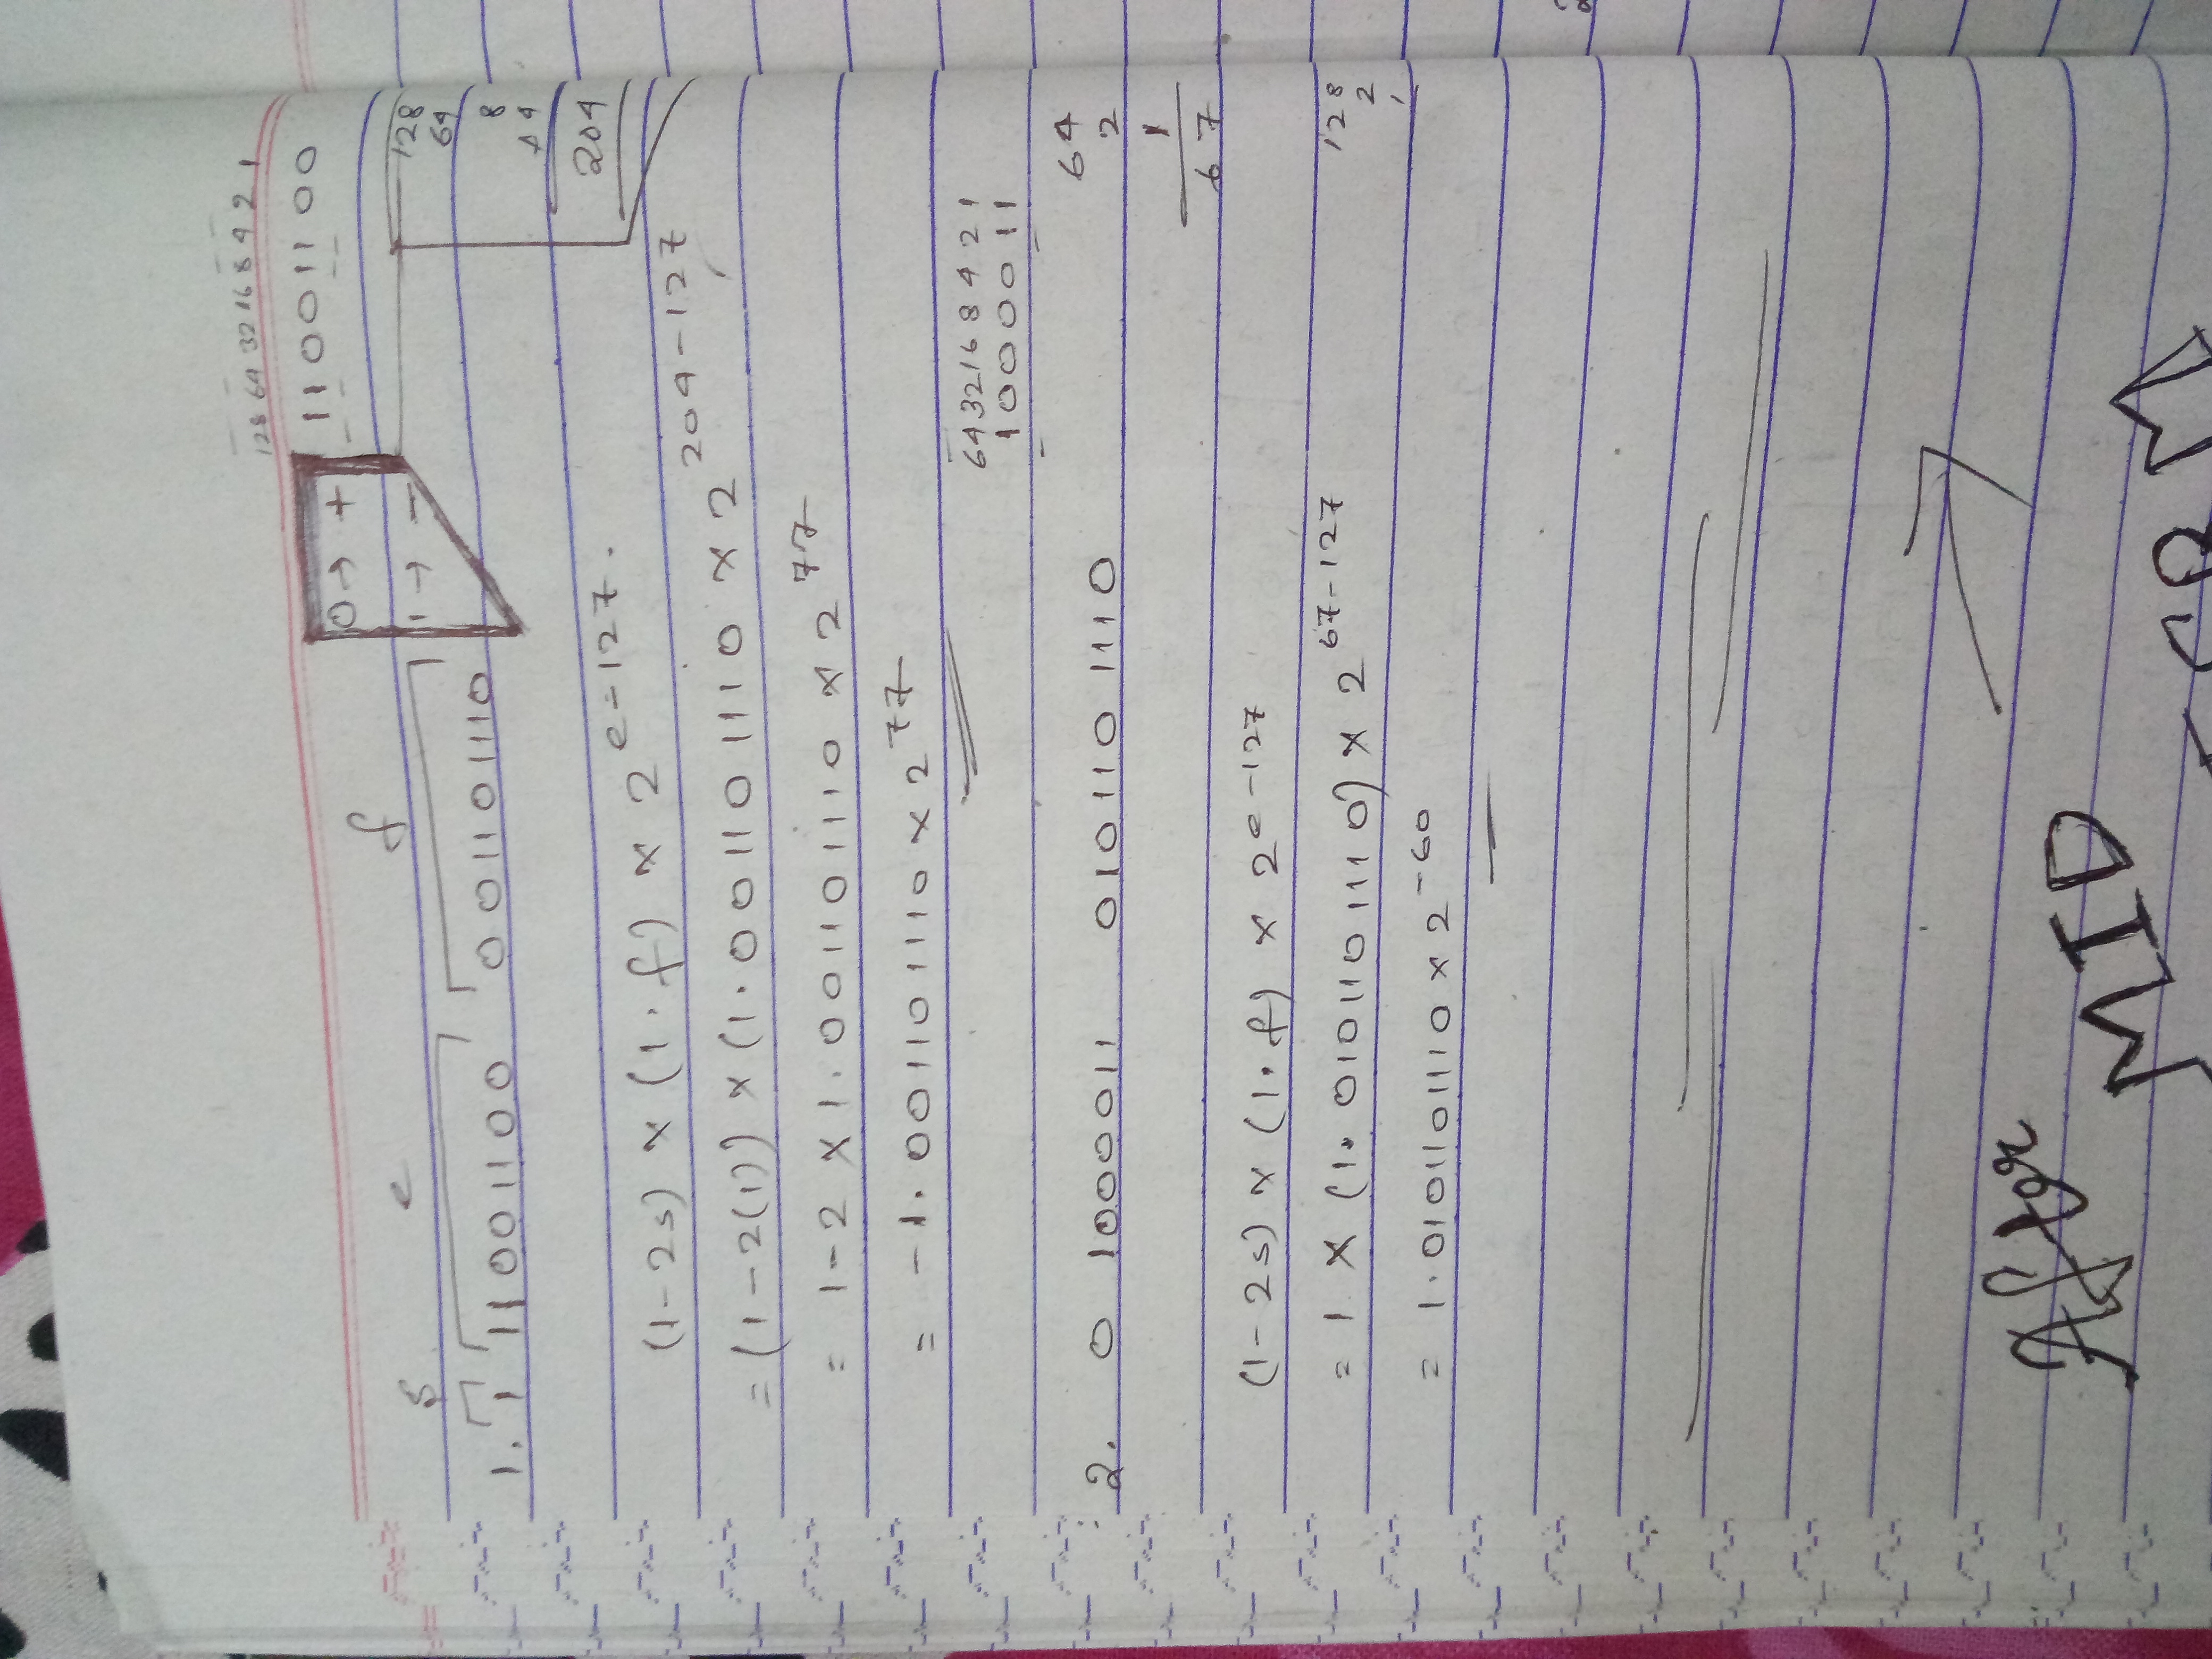 128 64 32 16 8 4 2 1
11001100
0 → +
1 → -
s e f
1. 1 11001100 001101110
128
64
8
+ 4
204
(1-2s) × (1.f) × 2^e-127.
= (1-2(1)) × (1.001101110 × 2^204-127
= 1-2 × 1.001101110 × 2^77
= -1.001101110 × 2^77
64 32 16 8 4 2 1
1000011
2. 0 1000011 0101101110
64
2
1
67
(1-2s) × (1.f) × 2^e-127
= 1 × (1.0101101110) × 2^67-127
128
2
1
= 1.0101101110 × 2^-60
After
MID